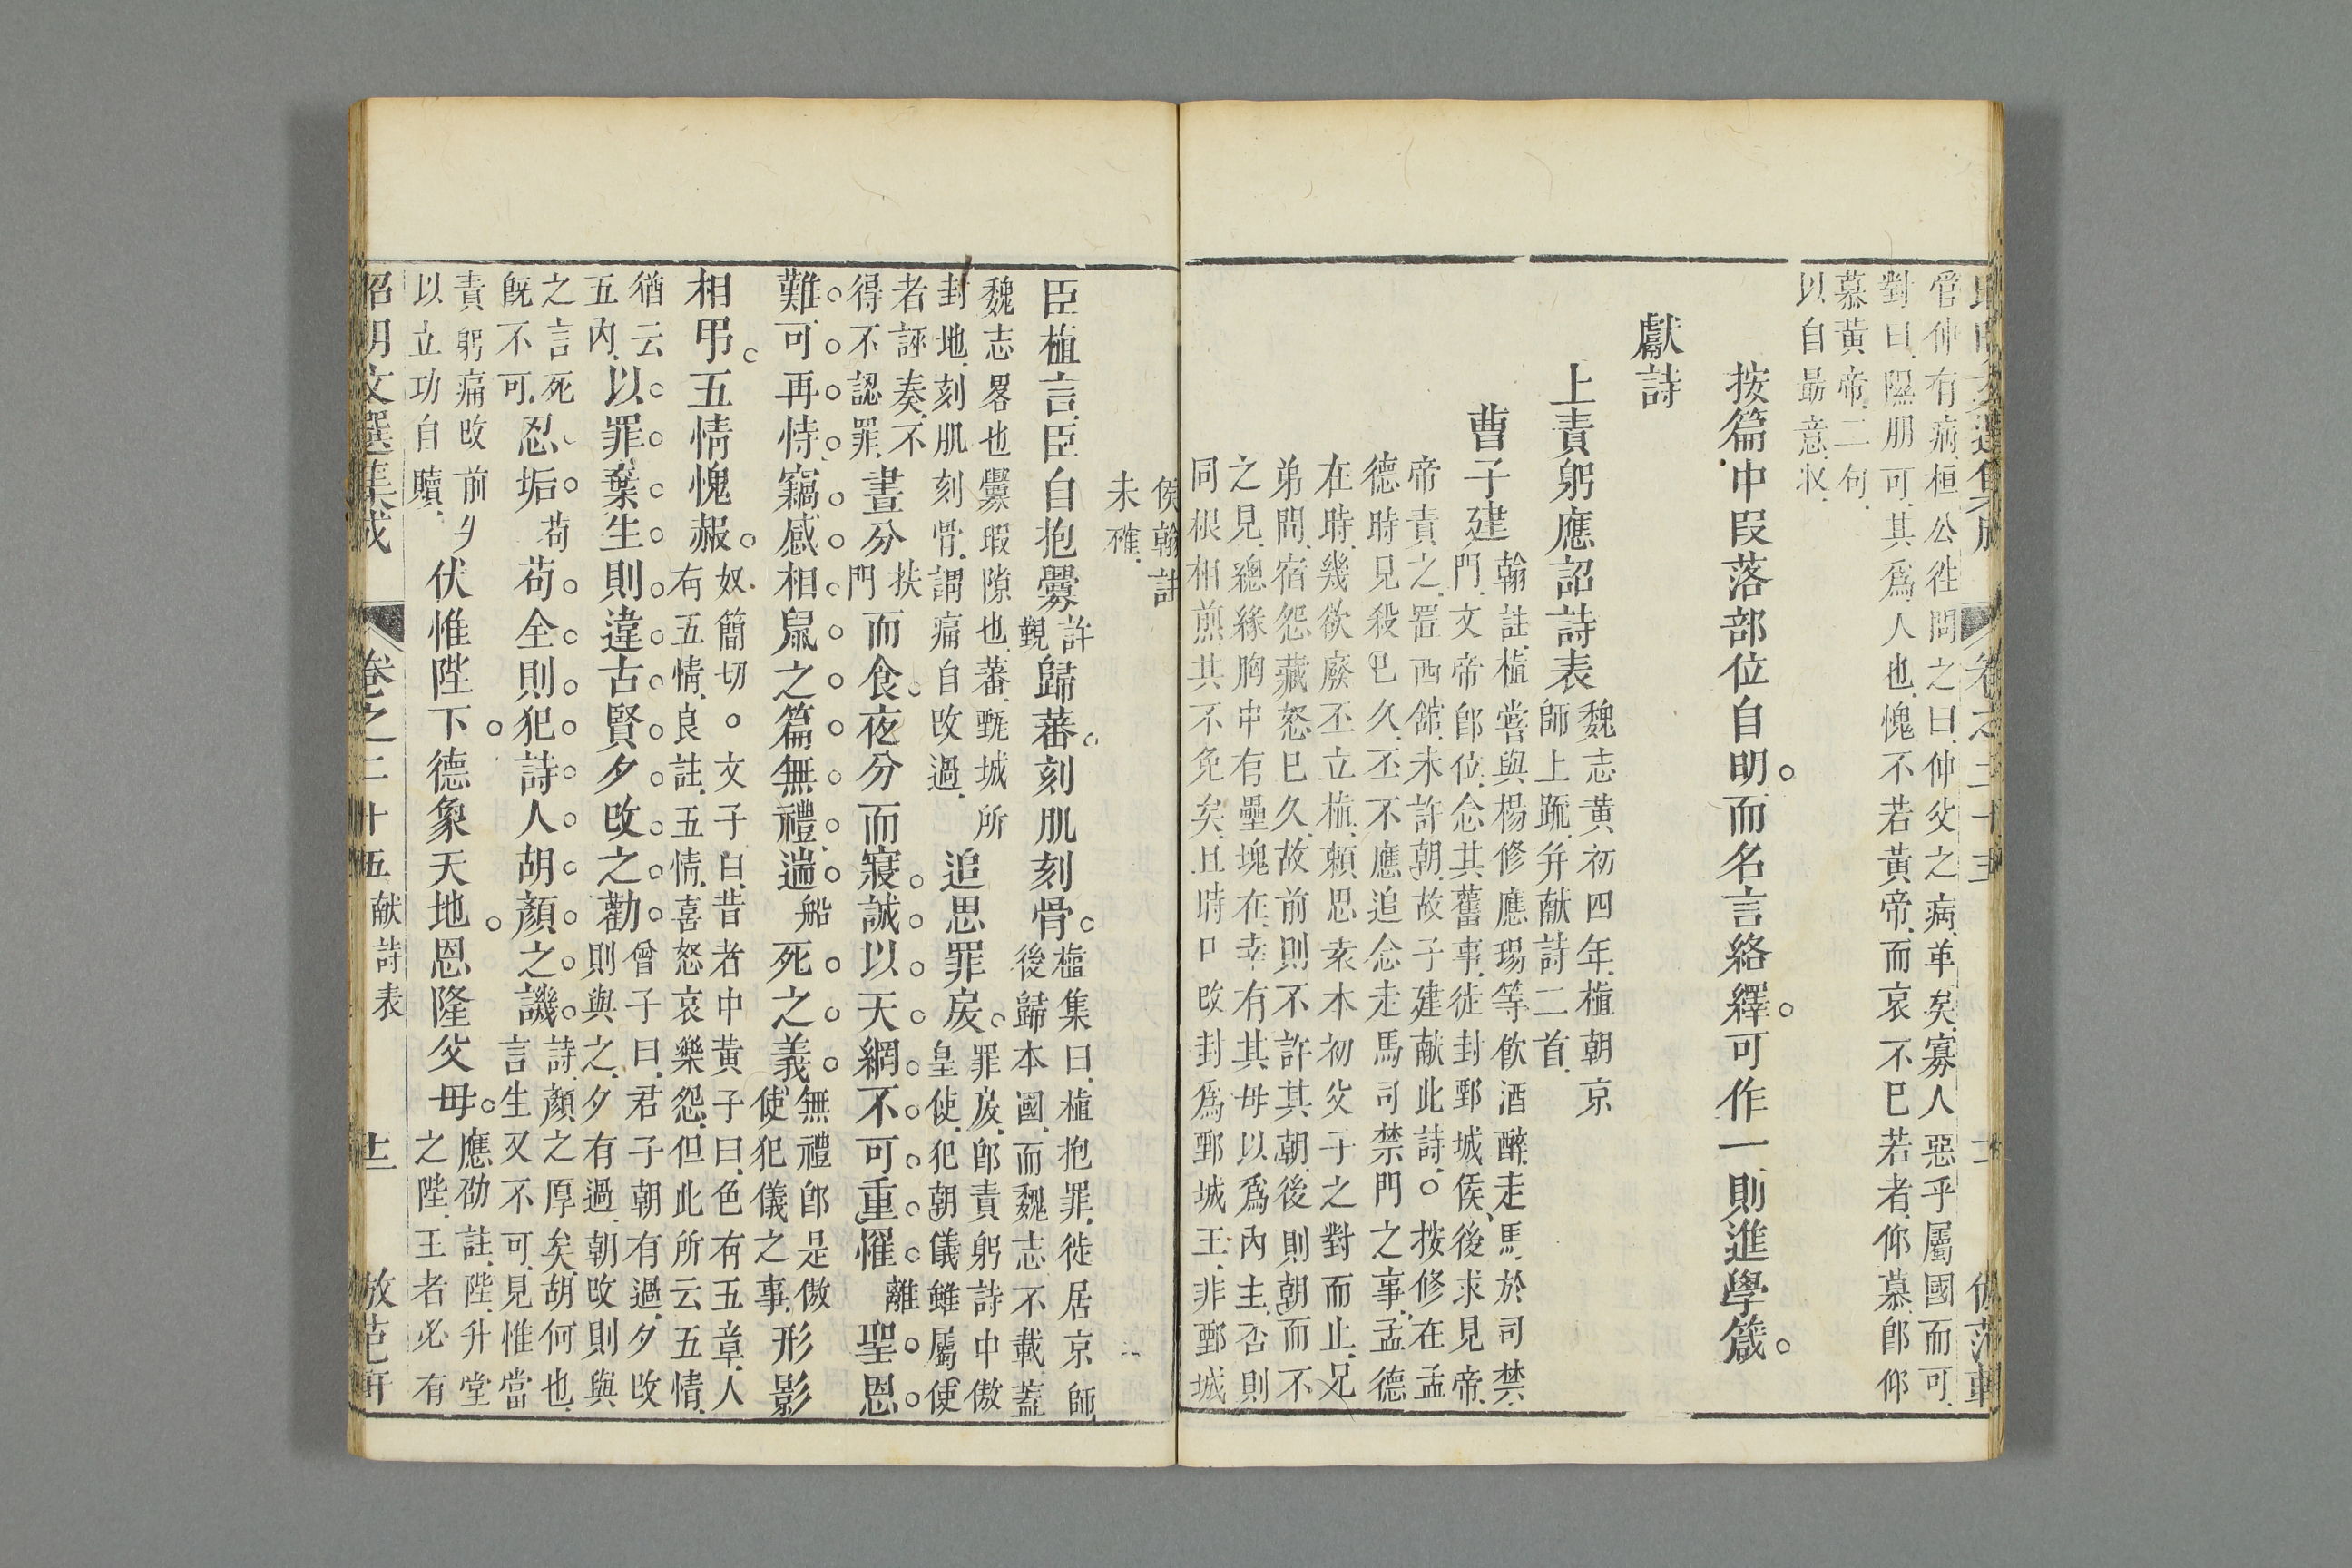 昭明文選集成 卷之二十五
管仲有病桓公徃問之曰仲父之病革矣寡人惡乎屬國而可
對曰隰朋可其爲人也愧不若黃帝而哀不巳若者仰慕卽仰
慕黃帝二句
以自最意收
按篇中段落部位自明而名言絡繹可作一則進學箴
獻詩
上責躬應詔詩表
魏志黃初四年植朝京
師上䟽并献詩二首
曹子建
翰註植嘗與楊修應瑒等飲酒醉走馬於司禁
門文帝卽位念其舊事徙封鄄城侯後求見帝
帝責之置西館未許朝故子建献此詩○按修在孟
德時見殺巳久丕不應追念走馬司禁門之事孟德
在時幾欲廢丕立植頼思袁本初父子之對而止兄
弟間宿怨藏怒巳久故前則不許其朝後則朝而不
之見總緣胸中有壘塊在幸有其母以爲內主否則
同根相煎其不免矣且時已改封爲鄄城王非鄄城
侯翰註
未確
臣植言臣自抱釁
許
覲
歸蕃刻肌刻骨
植集曰植抱罪徙居京師
後歸本國而魏志不載蓋
魏志畧也釁瑕隙也蕃甄城所
封地刻肌刻骨謂痛自改過
追思罪戾
罪戾卽責躬詩中傲
皇使犯朝儀雖屬使
者誣奏不
得不認罪
晝分
扶
門
而食夜分而寢誠以天網不可重罹
離
聖恩
難可再恃竊感相鼠之篇無禮遄
船
死之義
無禮卽是傲
使犯儀之事
形影
相弔五情愧赧
奴簡切○文子曰昔者中黃子曰色有五章人
有五情良註五情喜怒哀樂怨但此所云五情
猶云
五內
以罪棄生則違古賢夕改之勸
曾子曰君子朝有過夕改
則與之夕有過朝改則與
之言死
旣不可
忍垢
苟
苟全則犯詩人胡顏之譏
詩顏之厚矣胡何也
言生又不可見惟當
責躬痛改前夕
以立功自贖
伏惟陛下德象天地恩隆父母
應劭註陛升堂
之陛王者必有
昭明文選集成 卷之二十五 献詩表 十二 倣范軒